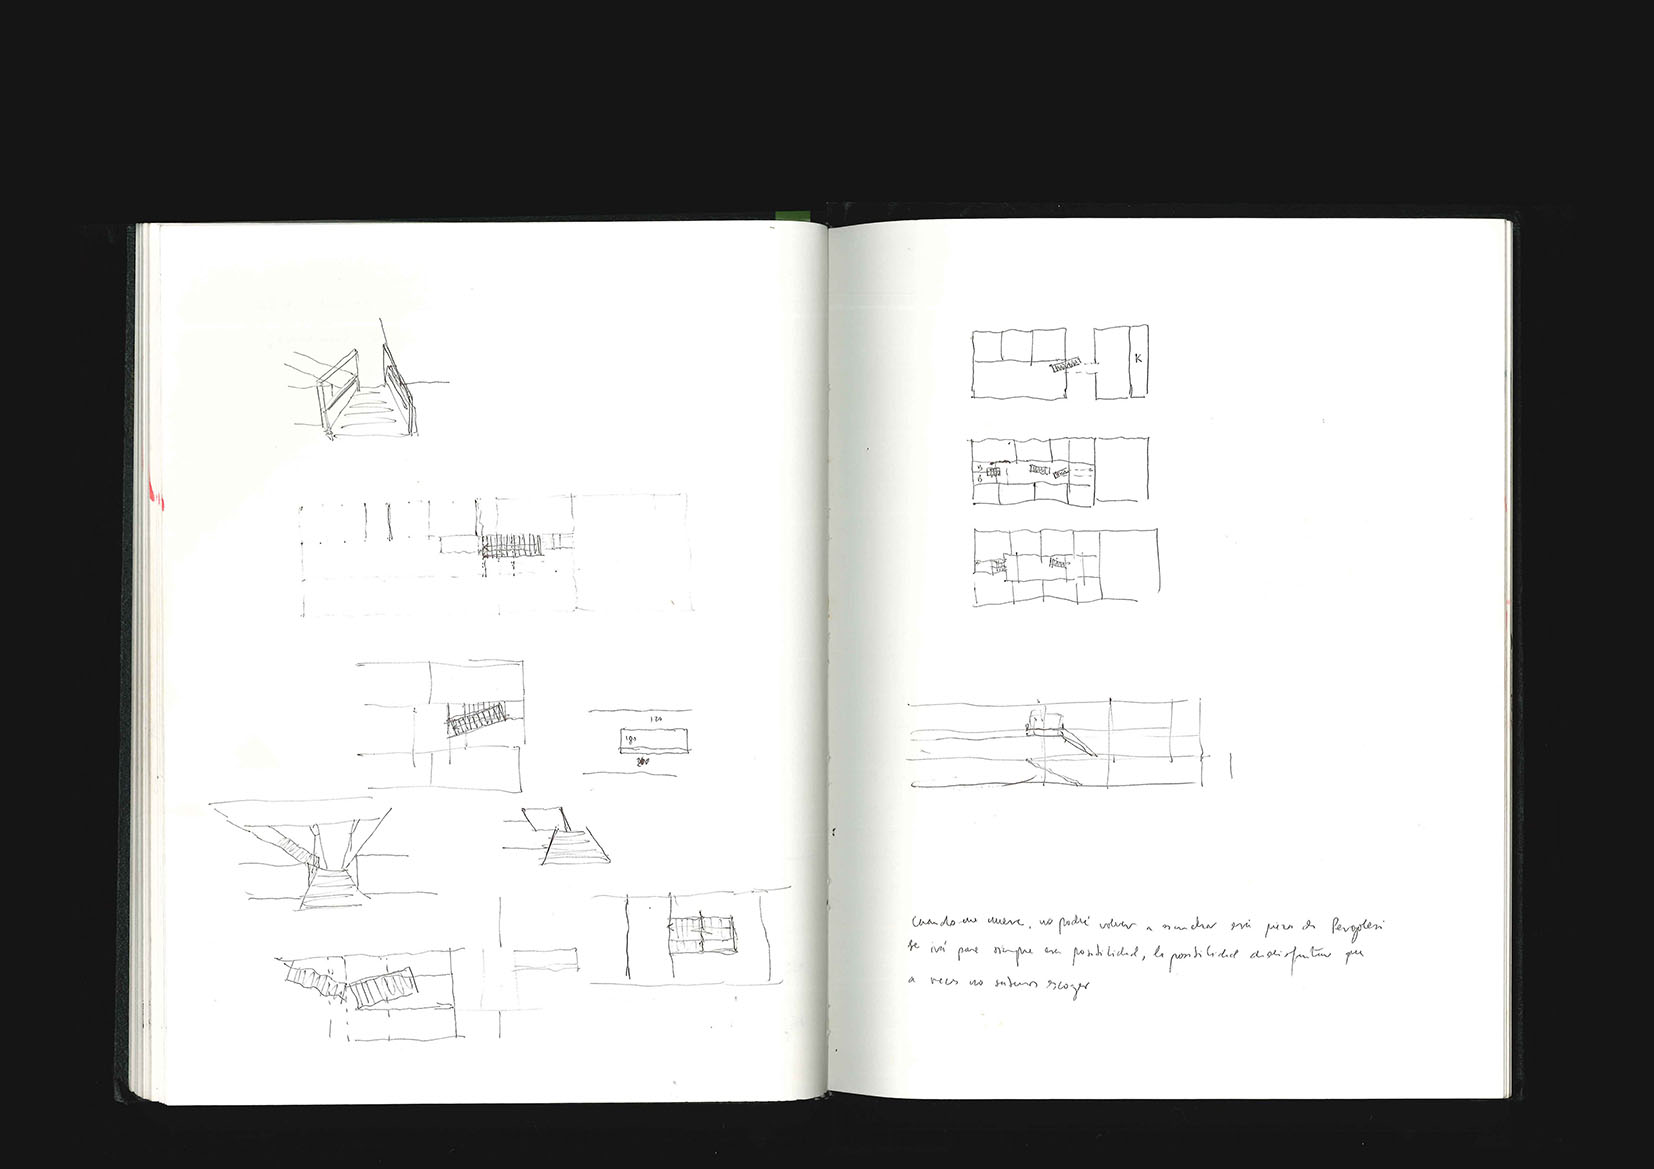 120
180
K
Cuando me muera, no podré volver a escuchar esta pieza de Pergolesi
Se irá para siempre esa posibilidad, la posibilidad de disfrutar que
a veces no sabemos escoger